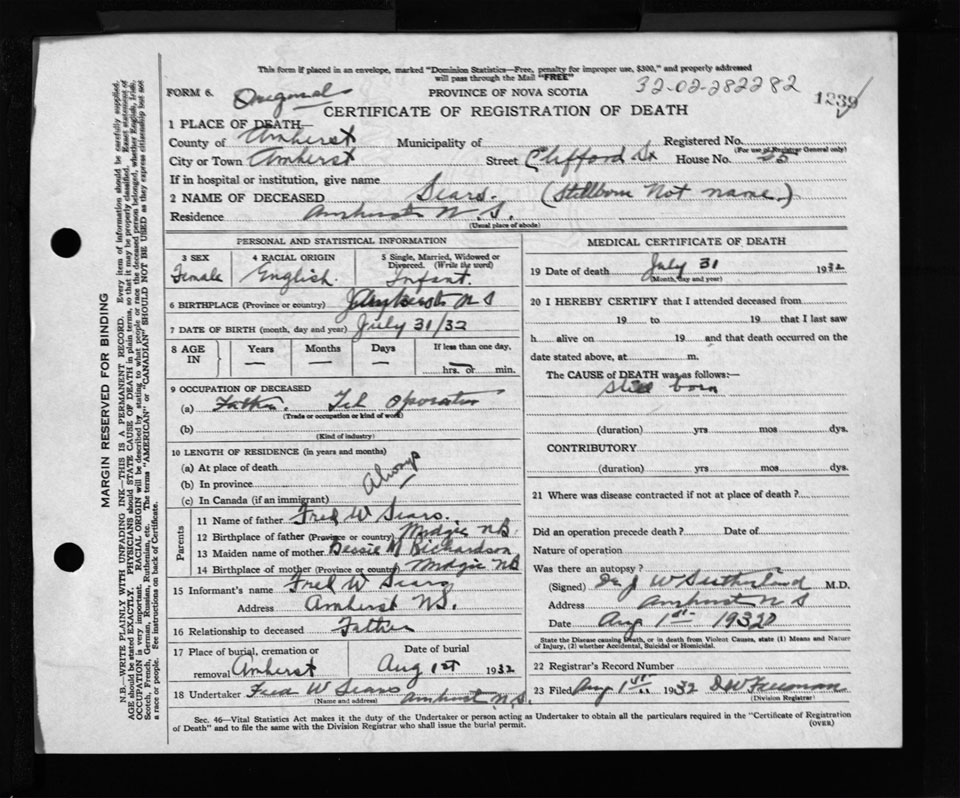 This form if placed in an envelope, marked "Dominion Statistics—Free, penalty for improper use, $300," and properly addressed
will pass through the Mail "FREE"
FORM 6. Original PROVINCE OF NOVA SCOTIA 32-02-282282
1239
CERTIFICATE OF REGISTRATION OF DEATH
1 PLACE OF DEATH—
County of Amherst Municipality of Registered No.
(For use of Registrar General only)
City or Town Amherst Street Clifford St House No. 25
If in hospital or institution, give name
2 NAME OF DECEASED Sears. (Stillborn Not name.)
Residence Amherst N S.
(Usual place of abode)
PERSONAL AND STATISTICAL INFORMATION
3 SEX 4 RACIAL ORIGIN 5 Single, Married, Widowed or
Divorced. (Write the word)
Female English. Infant.
6 BIRTHPLACE (Province or country) N S
7 DATE OF BIRTH (month, day and year) July 31/32
8 AGE IN Years Months Days If less than one day,
hrs. or min.
9 OCCUPATION OF DECEASED
(a) Father. Tel Operator
(Trade or occupation or kind of work)
(b)
(Kind of industry)
10 LENGTH OF RESIDENCE (in years and months)
(a) At place of death
(b) In province Always
(c) In Canada (if an immigrant)
Parents
11 Name of father Fred W Sears.
12 Birthplace of father (Province or country) Midgic NB
13 Maiden name of mother Bessie M Richardson
14 Birthplace of mother (Province or country) Midgic NB
15 Informant's name Fred W Sears
Address Amherst NS.
16 Relationship to deceased Father
17 Place of burial, cremation or Date of burial
removal Amherst Aug 1st 1932
18 Undertaker Fred W Sears Amherst N.S.
(Name and address)
MEDICAL CERTIFICATE OF DEATH
19 Date of death July 31 1932
(Month, day and year)
20 I HEREBY CERTIFY that I attended deceased from
19 to 19 that I last saw
h alive on 19 and that death occurred on the
date stated above, at m.
The CAUSE of DEATH was as follows:—
still born
(duration) yrs mos dys.
CONTRIBUTORY
(duration) yrs mos dys.
21 Where was disease contracted if not at place of death?
Did an operation precede death? Date of
Nature of operation
Was there an autopsy?
(Signed) Dr J W Sutherland M.D.
Address Amherst N S
Date Aug 1st 1932
State the Disease causing Death, or in death from Violent Causes, state (1) Means and Nature
of Injury, (2) whether Accidental, Suicidal or Homicidal.
22 Registrar's Record Number
23 Filed Aug 1st 1932
(Division Registrar)
Sec. 46—Vital Statistics Act makes it the duty of the Undertaker or person acting as Undertaker to obtain all the particulars required in the "Certificate of Registration
of Death" and to file the same with the Division Registrar who shall issue the burial permit.
(OVER)
MARGIN RESERVED FOR BINDING
N.B.—WRITE PLAINLY WITH UNFADING INK—THIS IS A PERMANENT RECORD. Every item of information should be carefully supplied.
AGE should be stated EXACTLY. PHYSICIANS should STATE CAUSE OF DEATH in plain terms, so that it may be properly classified. Exact statement of
OCCUPATION is very important. RACIAL ORIGIN will be described by stating to what people or race the deceased person belonged, whether English, Irish,
Scotch, French, German, Russian, Ruthenian, etc. The terms "AMERICAN" or "CANADIAN" SHOULD NOT BE USED as they express citizenship but not
a race or people. See instructions on back of Certificate.